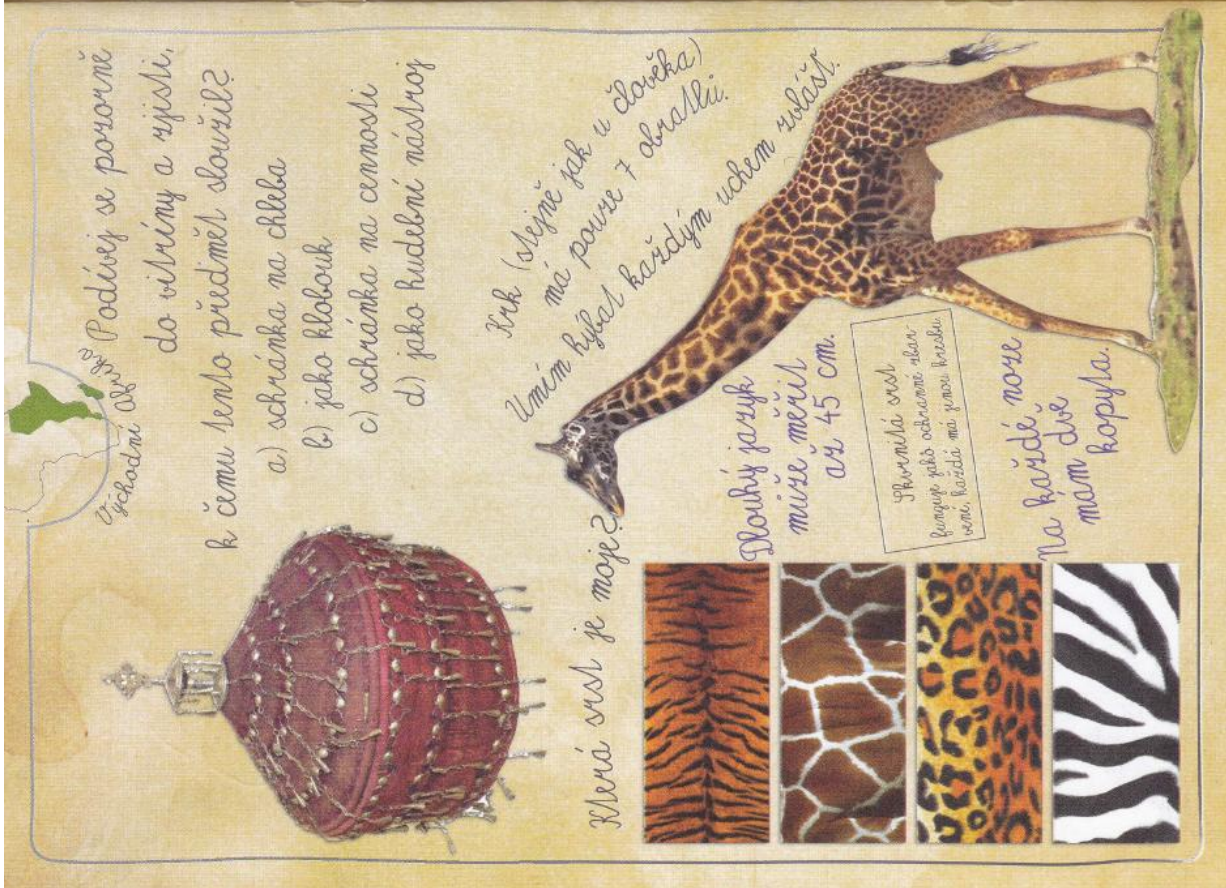 Východní Afrika
Podívej se pozorně
do vitríny a zjisti,
k čemu tento předmět sloužil?
a) schránka na chleba
b) jako klobouk
c) schránka na cennosti
d) jako hudební nástroj
Krk (stejně jak u člověka)
má pouze 7 obratlů.
Umím hýbat každým uchem zvlášť.
Která srst je moje?
Dlouhý jazyk
může měřit
až 45 cm.
Skvrnitá srst
funguje jako ochranné zbar-
vení, každá má jinou kresbu
Na každé noze
mám dvě
kopyta.